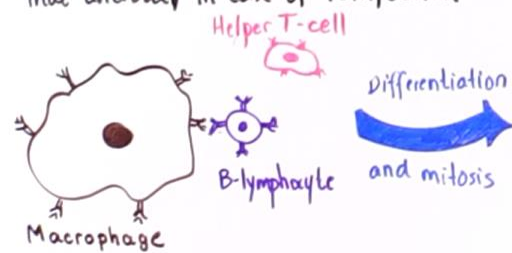 Helper T-cell
Differentiation
and mitosis
B-lymphocyte
Macrophage